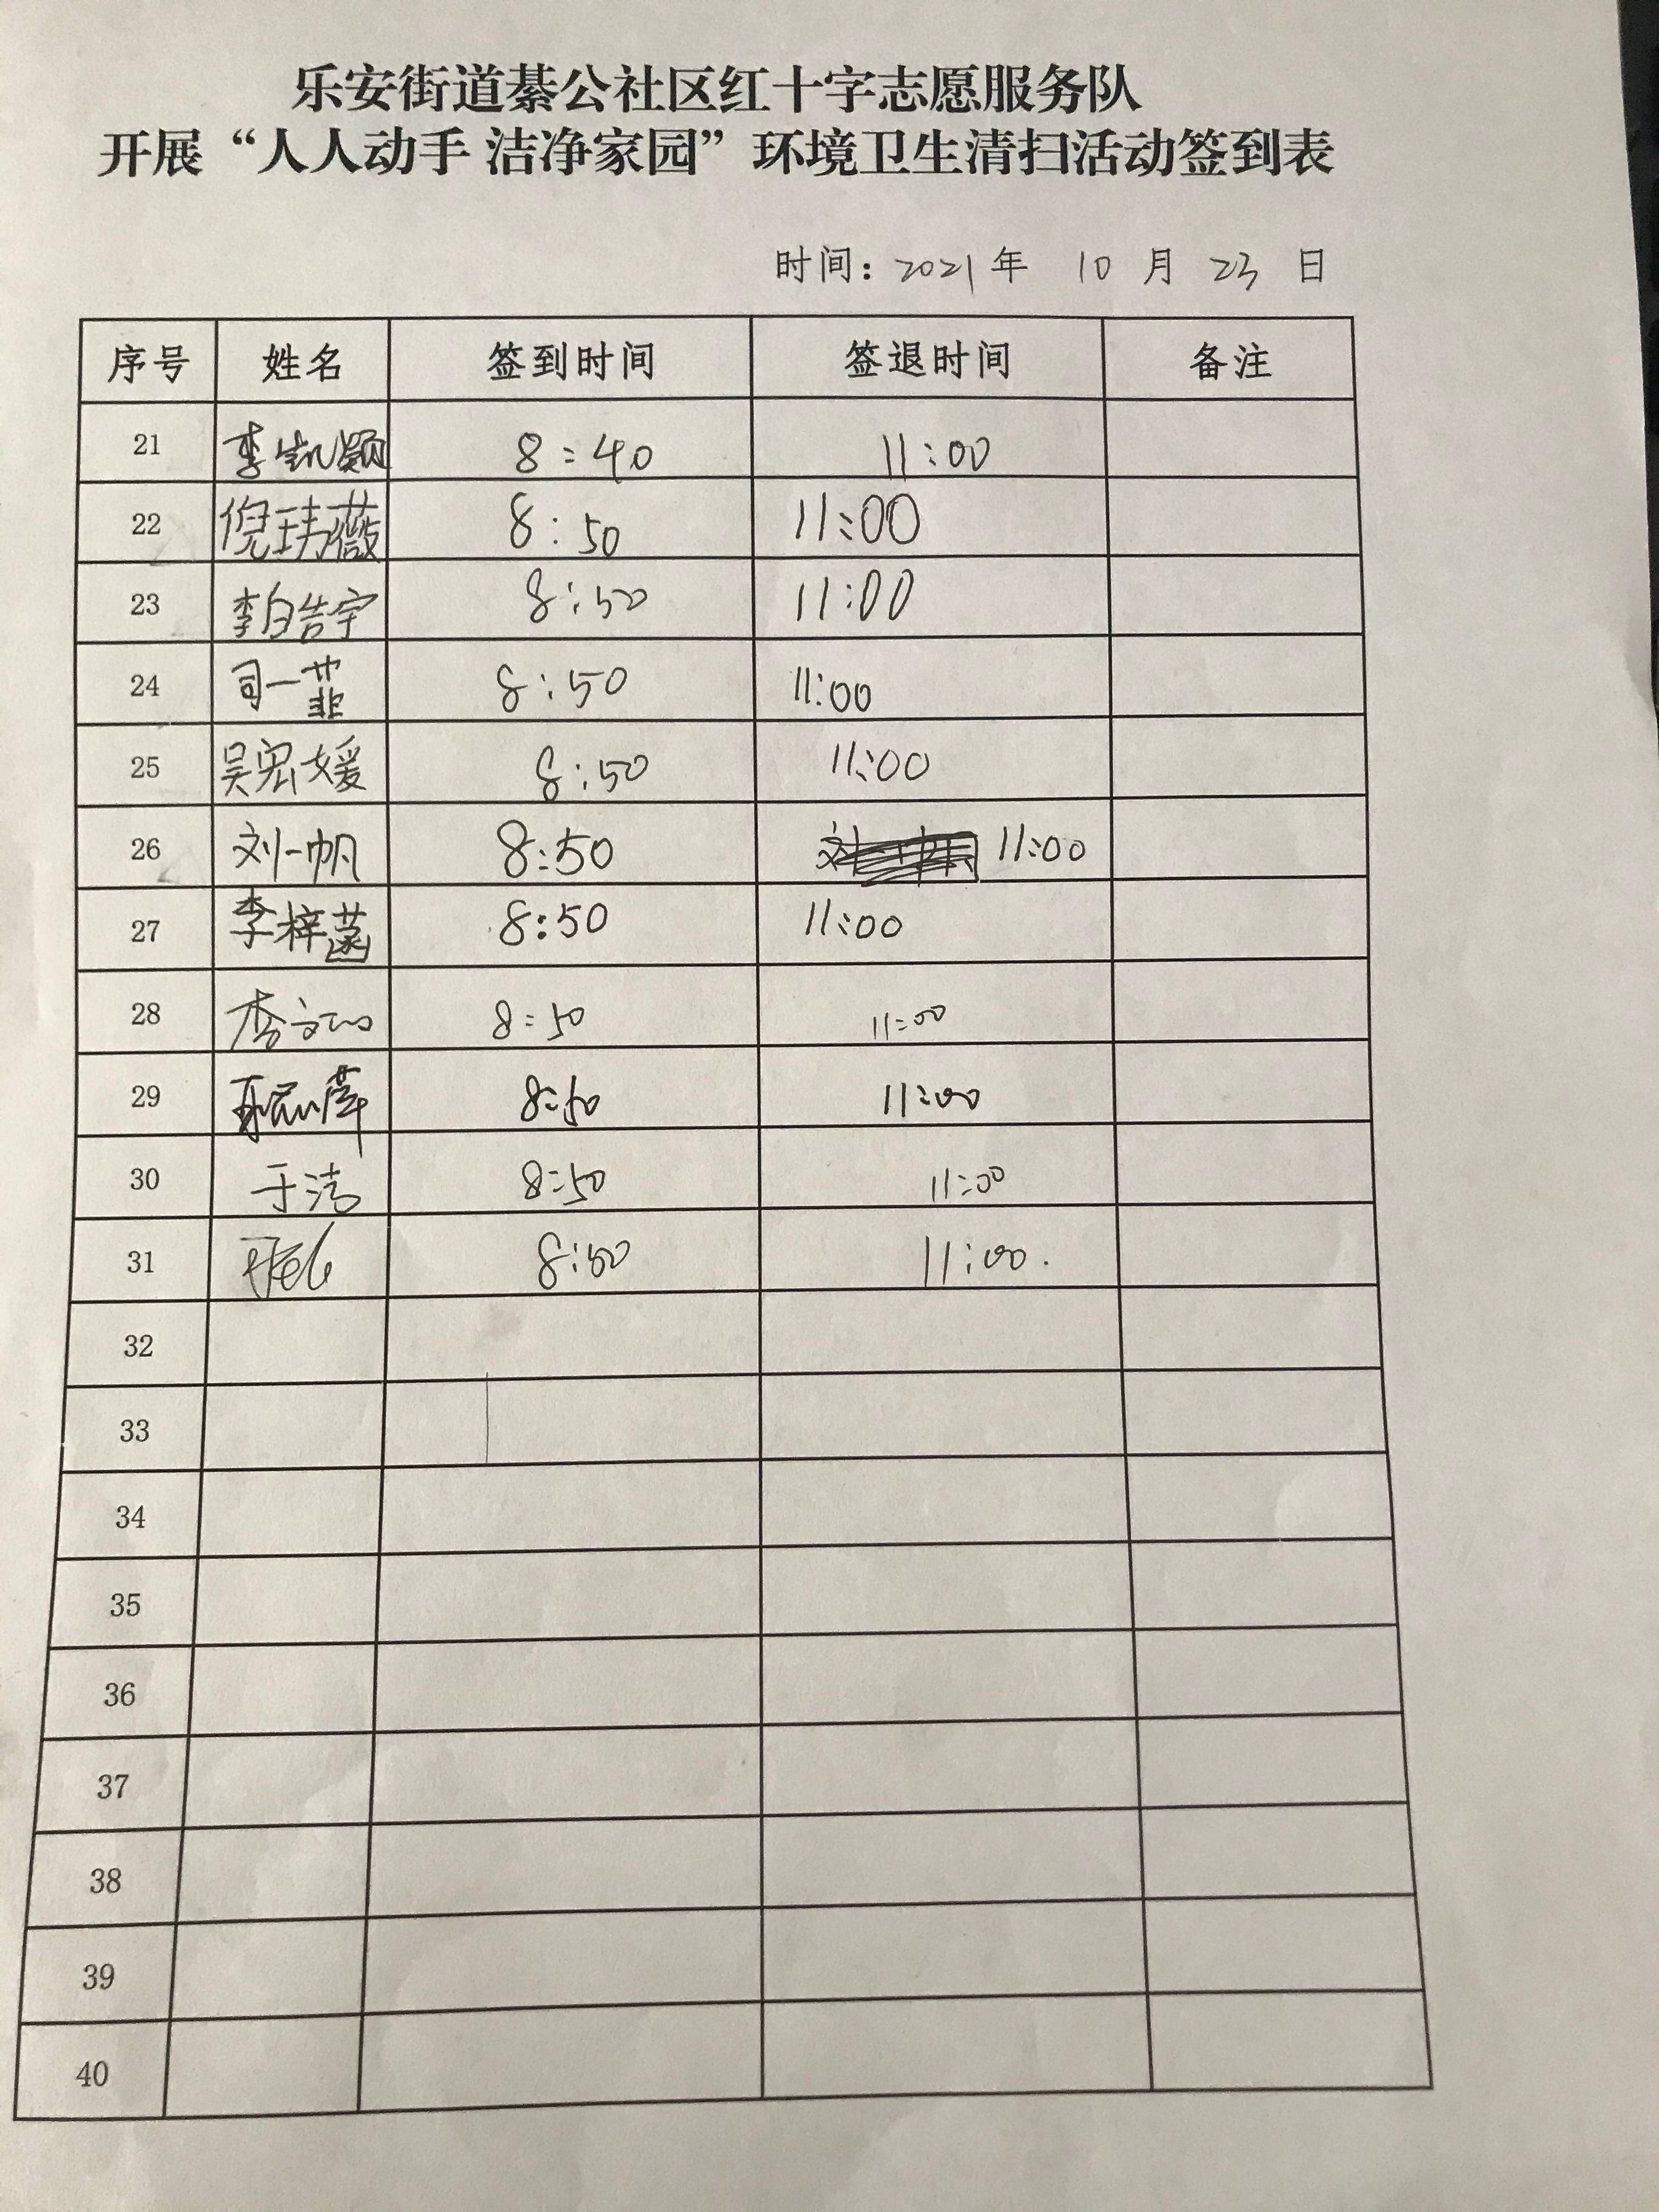 乐安街道綦公社区红十字志愿服务队
开展“人人动手 洁净家园”环境卫生清扫活动签到表
时间：2021年 10 月 23 日
序号 姓名 签到时间 签退时间 备注
21 李凯颖 8:40 11:00
22 倪玮薇 8:50 11:00
23 8:50 11:00
24 司一韮 8:50 11:00
25 吴宏媛 8:50 11:00
26 刘一帆 8:50 11:00
27 李梓菡 8:50 11:00
28 8:50 11:00
29 8:50 11:00
30 于洁 8:50 11:00
31 8:50 11:00.
32
33
34
35
36
37
38
39
40